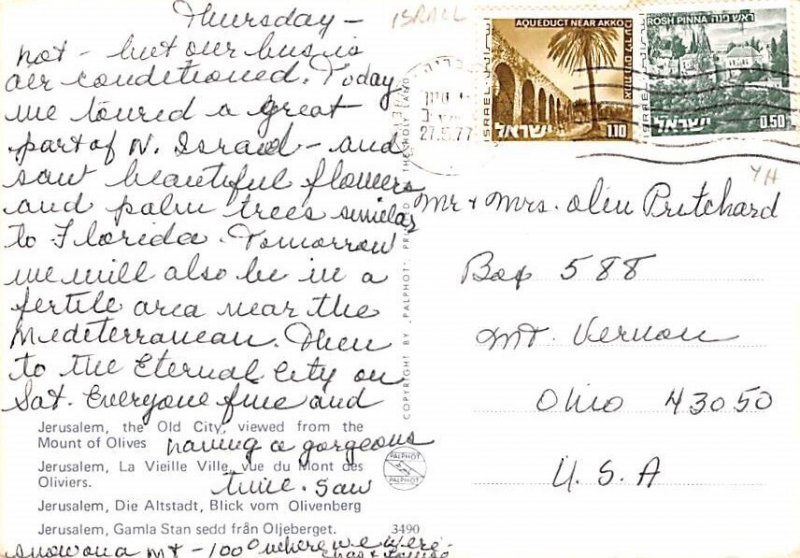 Thursday -
Hot - but our bus is
air conditioned. Today
we toured a great
part of N. Israel - and
saw beautiful flowers
and palm trees similar
to Florida. Tomorrow
we will also be in a
fertile area near the
Mediterranean. Then
to the Eternal City on
Sat. Everyone fine and
having a gorgeous
time. Saw
snow on a mt - 100° where we were.
Jerusalem, the Old City, viewed from the
Mount of Olives
Jerusalem, La Vieille Ville, vue du Mont des
Oliviers.
Jerusalem, Die Altstadt, Blick vom Olivenberg
Jerusalem, Gamla Stan sedd från Oljeberget.
3490
COPYRIGHT BY "PALPHOT" PRINTED IN THE HOLY LAND
PALPHOT
ISRAEL
AQUEDUCT NEAR AKKO
ISRAEL
ישראל
1.10
ROSH PINNA ראש פנה
ISRAEL
ישראל
0.50
27.5.77
YH
Mr & Mrs. Olin Pritchard
Box 588
Mt. Vernon
Ohio 43050
U.S.A